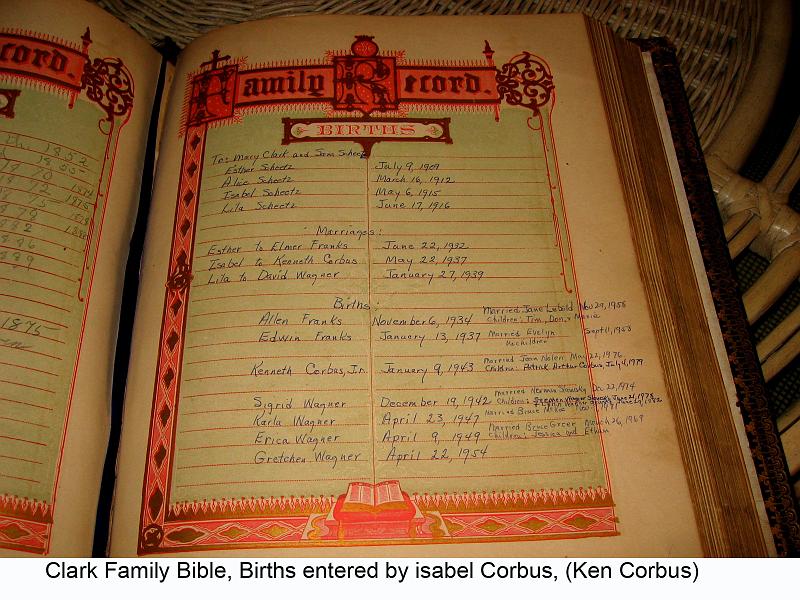 ecord.
1852
1855
1875
Family Record.
BIRTHS
To: Mary Clark and Sam Scheetz
Esther Scheetz July 9, 1909
Alice Scheetz March 16, 1912
Isabel Scheetz May 6, 1915
Lila Scheetz June 17, 1916
Marriages:
Esther to Elmer Franks June 22, 1932
Isabel to Kenneth Corbus May 22, 1937
Lila to David Wagner January 27, 1939
Births:
Allen Franks November 6, 1934 Married Jane Lebold Nov 29, 1958
Children: Tim, Don, & Maria
Edwin Franks January 13, 1937 Married Evelyn Sept 11, 1958
No children
Kenneth Corbus, Jr. January 9, 1943 Married Joan Nolen May 22, 1976
Children: Patrick Arthur Corbus, July 4, 1979
Sigrid Wagner December 19, 1942 Married Norman Dec 22, 1974
Children:
Karla Wagner April 23, 1947 Married Bruce McKee
Erica Wagner April 9, 1949 Married Bruce Greer March 26, 1969
Children: Jessica and Ethan
Gretchen Wagner April 22, 1954
Clark Family Bible, Births entered by isabel Corbus, (Ken Corbus)